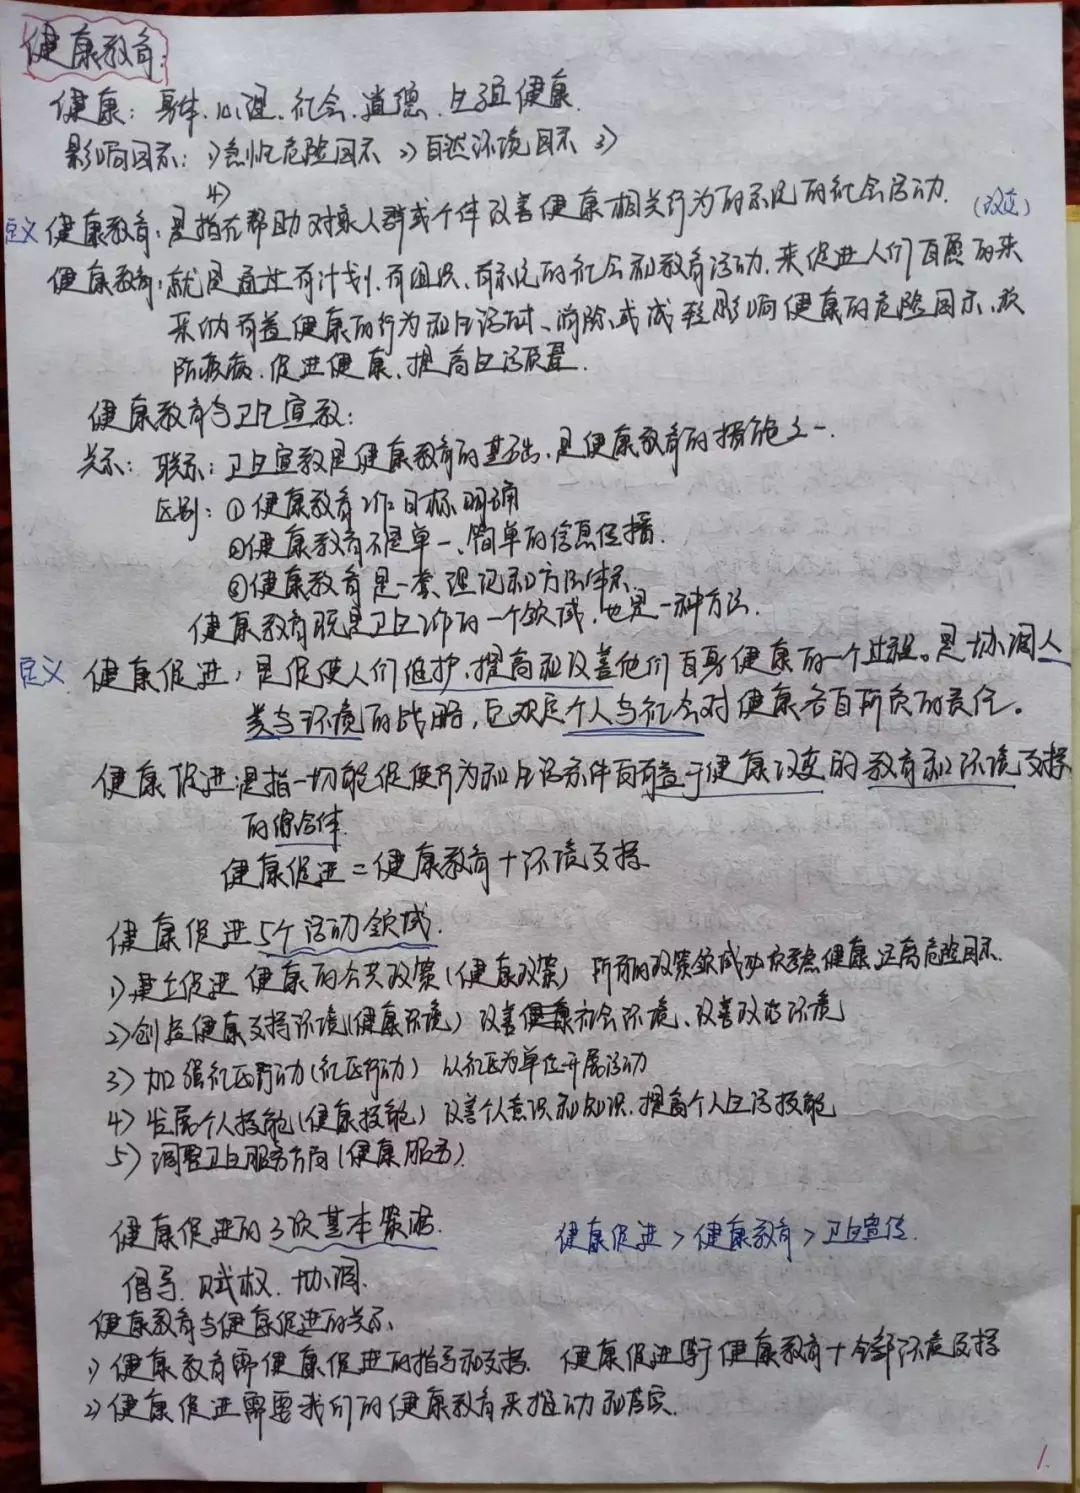 健康教育：
健康：身体、心理、社会、道德、生殖健康.
影响因素：1)急慢危险因素 2)自然环境因素 3)
4)
定义 健康教育：是指在帮助对象人群或个体改善健康相关行为的系统的社会活动. (改变)
健康教育：就是通过有计划、有组织、有系统的社会和教育活动，来促进人们自愿的来
采纳有益健康的行为和生活方式、消除或减轻影响健康的危险因素、预
防疾病、促进健康、提高生活质量.
健康教育与卫生宣教：
关系：联系：卫生宣教是健康教育的基础，是健康教育的措施之一.
区别：①健康教育工作目标明确
②健康教育不是单一、简单的信息传播.
③健康教育是一套理论和方法体系.
健康教育既是卫生工作的一个领域，也是一种方法.
定义 健康促进：是促使人们维护、提高和改善他们自身健康的一个过程。是协调人
类与环境的战略，它规定个人与社会对健康各自所负的责任。
健康促进：是指一切能促使行为和生活条件向有益于健康改变的教育和环境支持
的综合体.
健康促进=健康教育+环境支持
健康促进5个活动领域.
1)建立促进健康的公共政策(健康政策) 所有的政策领域必须考虑健康远离危险因素.
2)创造健康支持环境(健康环境) 改善健康社会环境、改善政治环境
3)加强社区行动(社区行动) 以社区为单位开展活动
4)发展个人技能(健康技能) 改善个人意识和知识，提高个人生活技能
5)调整卫生服务方向(健康服务).
健康促进的3次基本策略.
健康促进>健康教育>卫生宣传.
倡导、赋权、协调.
健康教育与健康促进的关系、
1)健康教育需健康促进的指导和支持. 健康促进等于健康教育+全部环境支持
2)健康促进需要我们的健康教育来推动和落实.
1.